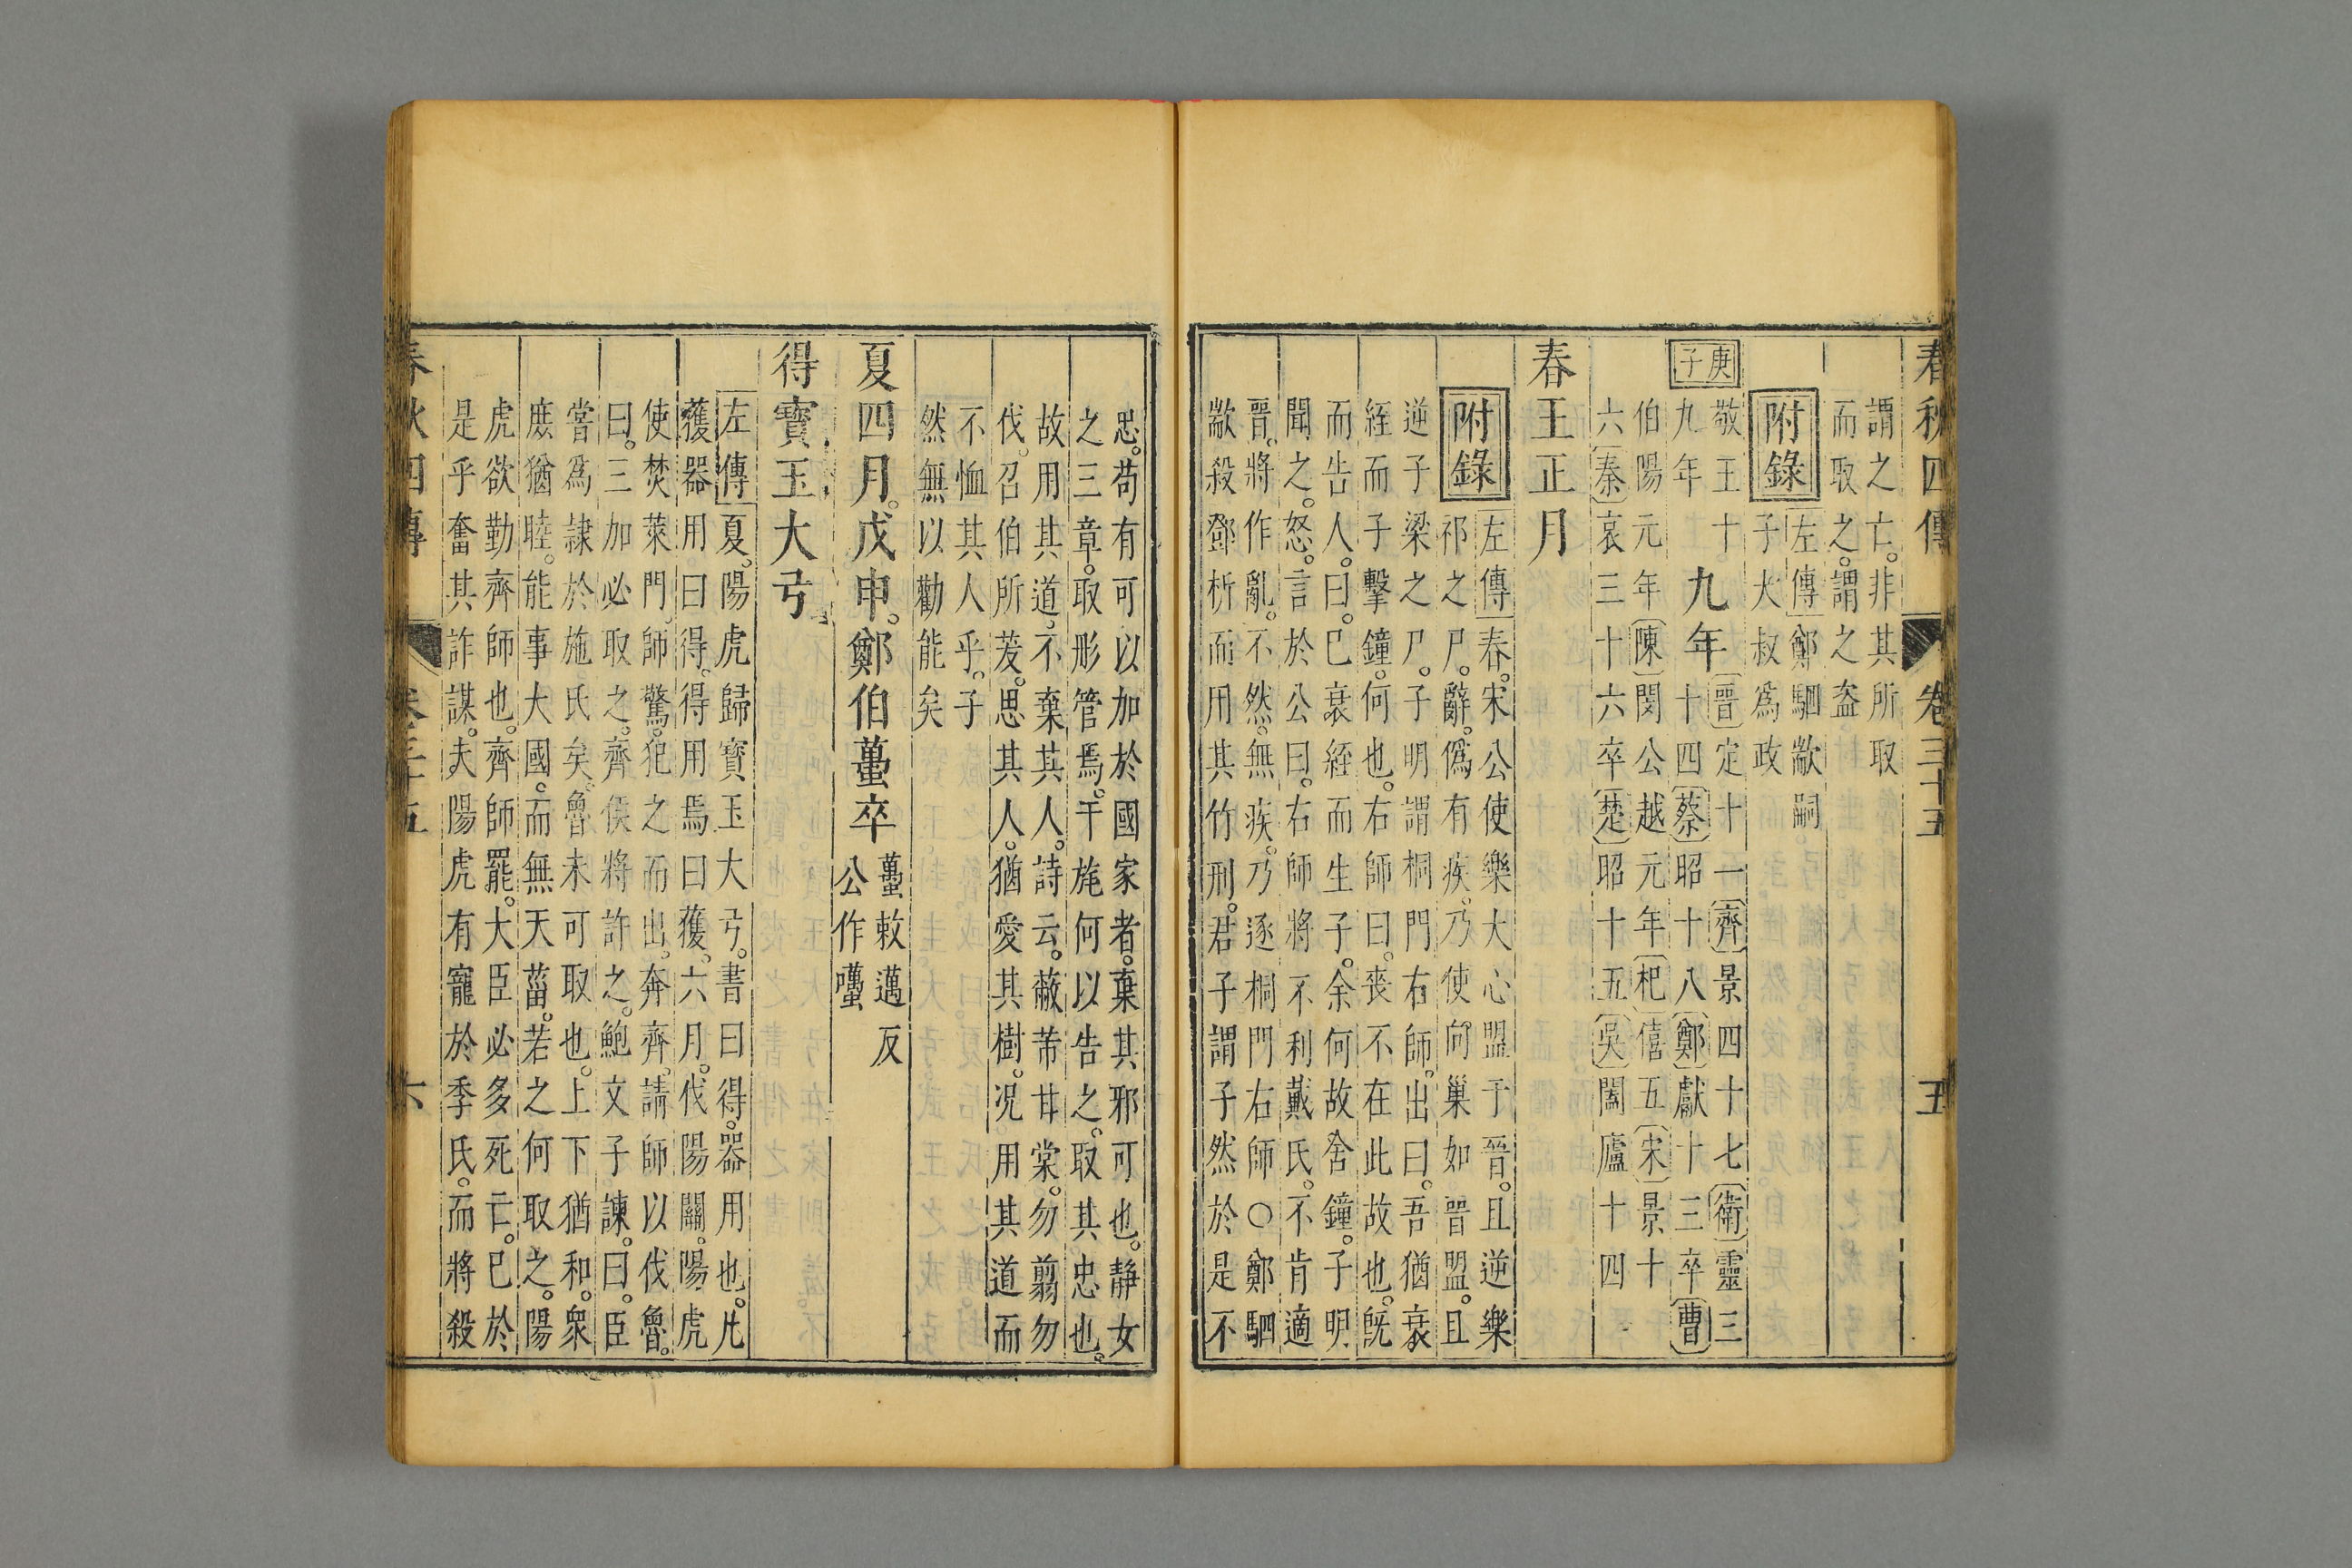 春秋四傳 卷三十五 五
謂之亡。非其所取
而取之。謂之盜。
附錄
左傳鄭駟歂嗣
子大叔爲政
庚子
敬王十九年
九年
晉定十一齊景四十七衛靈三
十四蔡昭十八鄭獻十三卒曹
伯陽元年陳閔公越元年杞僖五宋景十
六秦哀三十六卒楚昭十五吳闔廬十四
春王正月
附錄
左傳春。宋公使樂大心盟于晉。且逆樂
祁之尸。辭。僞有疾。乃使向巢如晉盟。且
逆子梁之尸。子明謂桐門右師。出曰。吾猶衰
絰而子擊鐘。何也。右師曰。喪不在此故也。旣
而告人。曰。已衰絰而生子。余何故舍鐘。子明
聞之。怒。言於公曰。右師將不利戴氏。不肯適
晉。將作亂。不然。無疾。乃逐桐門右師○鄭駟
歂殺鄧析而用其竹刑。君子謂子然於是不
忠。苟有可以加於國家者。棄其邪可也。静女
之三章。取彤管焉。干旄何以告之。取其忠也。
故用其道。不棄其人。詩云。蔽芾甘棠。勿翦勿
伐。召伯所茇。思其人。猶愛其樹。况用其道而
不恤其人乎。子
然無以勸能矣
夏四月。戊申。鄭伯蠆卒
蠆敕邁反
公作囆
得寶玉大弓
左傳夏。陽虎歸寶玉大弓。書曰得。器用也。凡
獲器用曰得。得用焉曰獲。六月。伐陽關。陽虎
使焚萊門。師驚。犯之而出。奔齊。請師以伐魯。
曰。三加必取之。齊侯將許之。鮑文子諫。曰。臣
嘗爲隷於施氏矣。魯未可取也。上下猶和。衆
庶猶睦。能事大國。而無天菑。若之何取之。陽
虎欲勤齊師也。齊師罷。大臣必多死亡。已於
是乎奮其詐謀。夫陽虎有寵於季氏。而將殺
春秋四傳 卷三十五 六